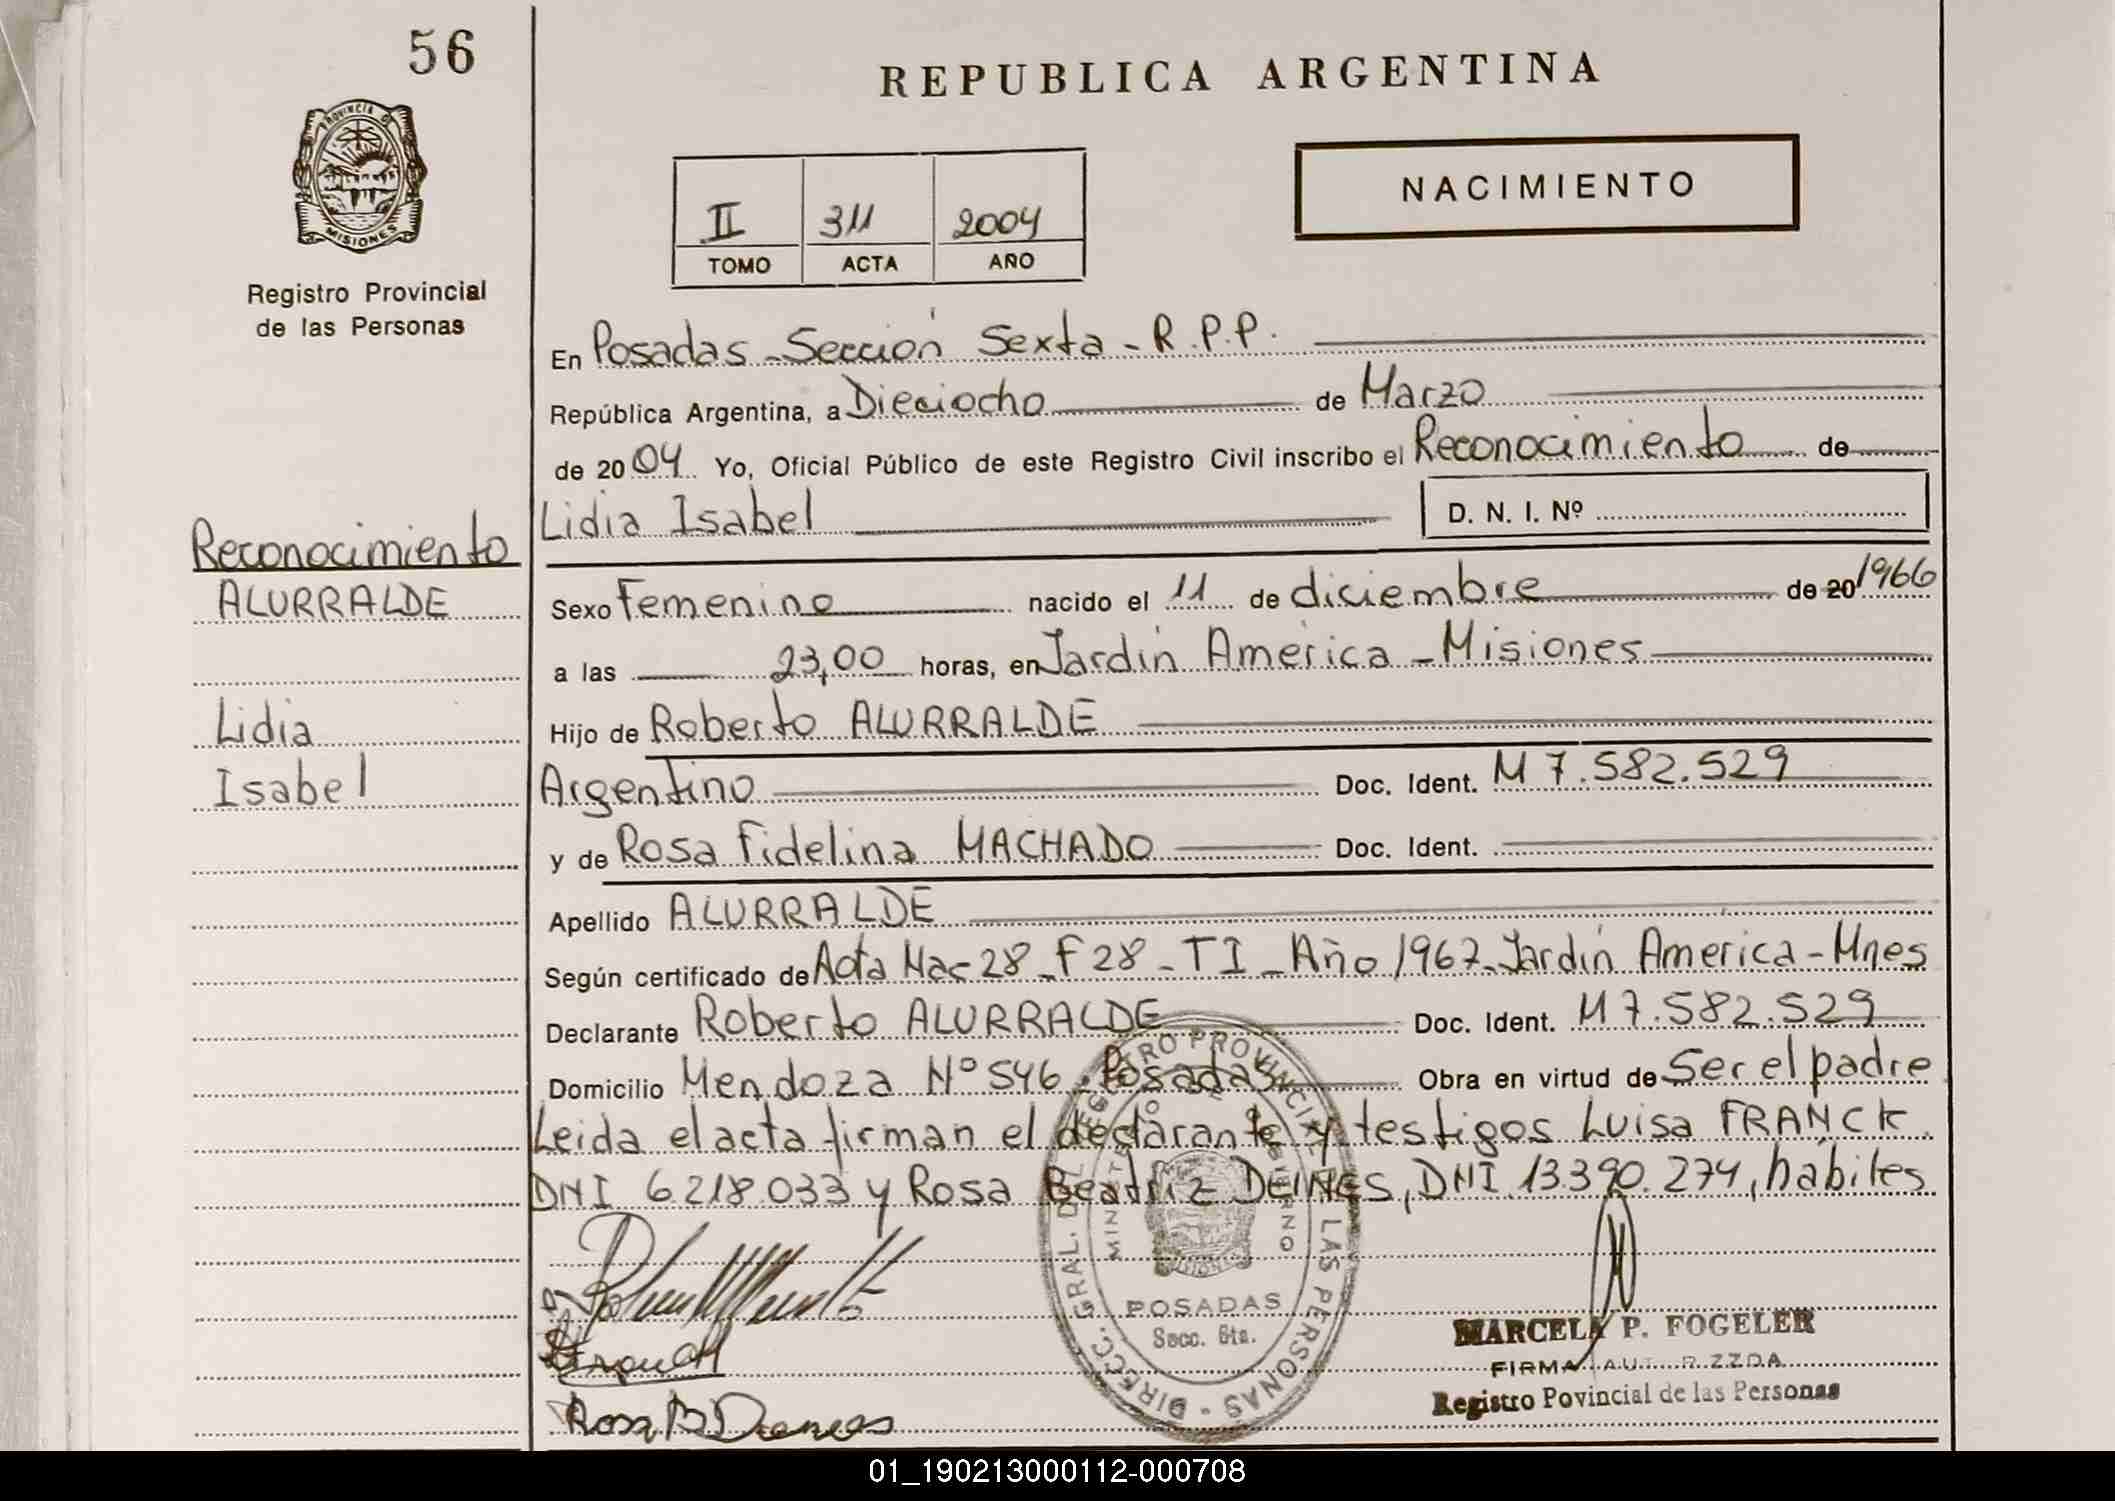 56
REPUBLICA ARGENTINA
PROVINCIA DE
MISIONES
NACIMIENTO
II 311 2004
TOMO ACTA AÑO
Registro Provincial
de las Personas
En Posadas - Sección Sexta - R.P.P.
República Argentina, a Dieciocho de Marzo
de 2004 Yo, Oficial Público de este Registro Civil inscribo el Reconocimiento de
Lidia Isabel D. N. I. Nº
Reconocimiento
ALURRALDE
Lidia
Isabel
Sexo Femenino nacido el 11 de diciembre de 20 1966
a las 23,00 horas, en Jardín América - Misiones
Hijo de Roberto ALURRALDE
Argentino Doc. Ident. M 7.582.529
y de Rosa Fidelina MACHADO Doc. Ident.
Apellido ALURRALDE
Según certificado de Acta Nac 28 - F 28 - T I - Año 1967 - Jardín America - Mnes
Declarante Roberto ALURRALDE Doc. Ident. M 7.582.529
Domicilio Mendoza Nº 546 - Posadas Obra en virtud de Ser el padre
Leida el acta firman el declarante y testigos Luisa FRANCK
DNI 6.218.033 y Rosa Beatriz DEINES, DNI 13.390.274, hábiles
DIRECC. GRAL. DEL REGISTRO PROVINCIAL DE LAS PERSONAS
MINISTERIO DE GOBIERNO
POSADAS
Secc. 6ta.
MARCELA P. FOGELER
FIRMA AUT. R. ZZDA
Registro Povincial de las Personas
01_190213000112-000708